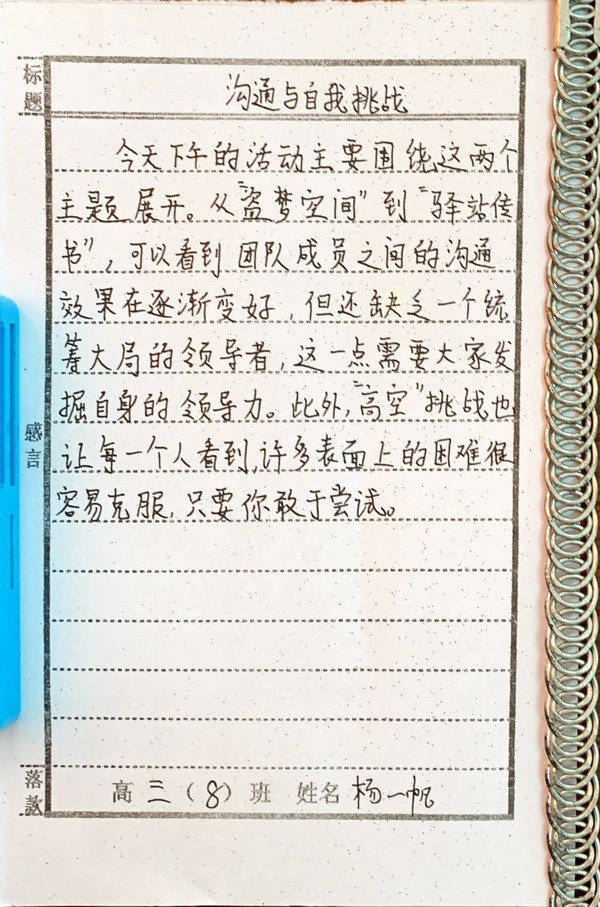 标题
沟通与自我挑战
今天下午的活动主要围绕这两个
主题展开。从“盗梦空间”到“驿站传
书”，可以看到团队成员之间的沟通
效果在逐渐变好，但还缺乏一个统
筹大局的领导者，这一点需要大家发
掘自身的领导力。此外，“高空”挑战也
让每一个人看到，许多表面上的困难很
容易克服，只要你敢于尝试。
感言
落款
高三（8）班 姓名 杨一帆